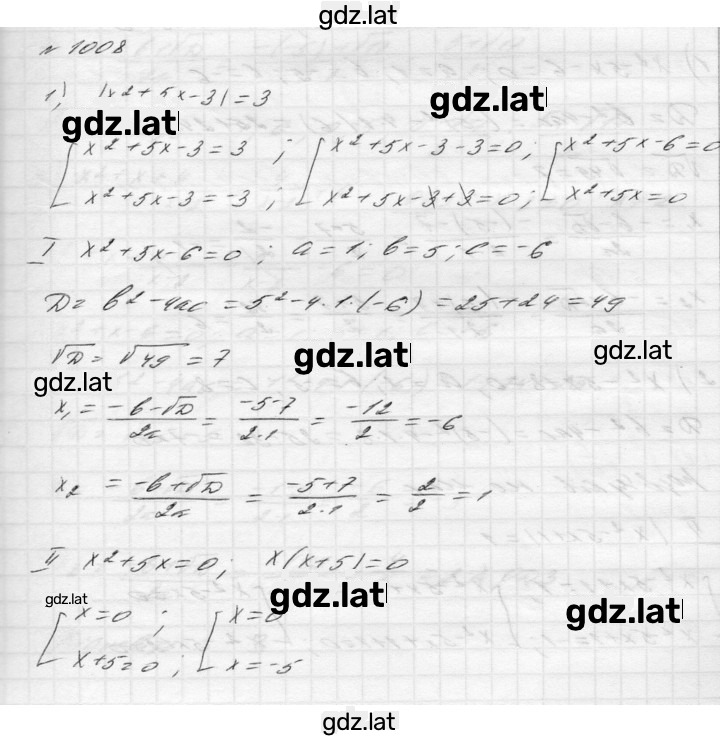 gdz.lat
№ 1008
1) |x²+5x-3|=3
gdz.lat
gdz.lat
[x²+5x-3=3 ; [x²+5x-3-3=0; [x²+5x-6=0
x²+5x-3=-3 ; x²+5x-3+3=0; x²+5x=0
I x²+5x-6=0 ; a=1; b=5; c=-6
D= b²-4ac = 5²-4·1·(-6) = 25+24=49
√D = √49 = 7
gdz.lat
gdz.lat
gdz.lat
x₁ = (-b-√D)/2a = (-5-7)/(2·1) = -12/2 = -6
x₂ = (-b+√D)/2a = (-5+7)/(2·1) = 2/2 = 1
II x²+5x=0; x(x+5)=0
gdz.lat
gdz.lat
gdz.lat
[x=0 ; [x=0
x+5=0 ; x=-5
gdz.lat